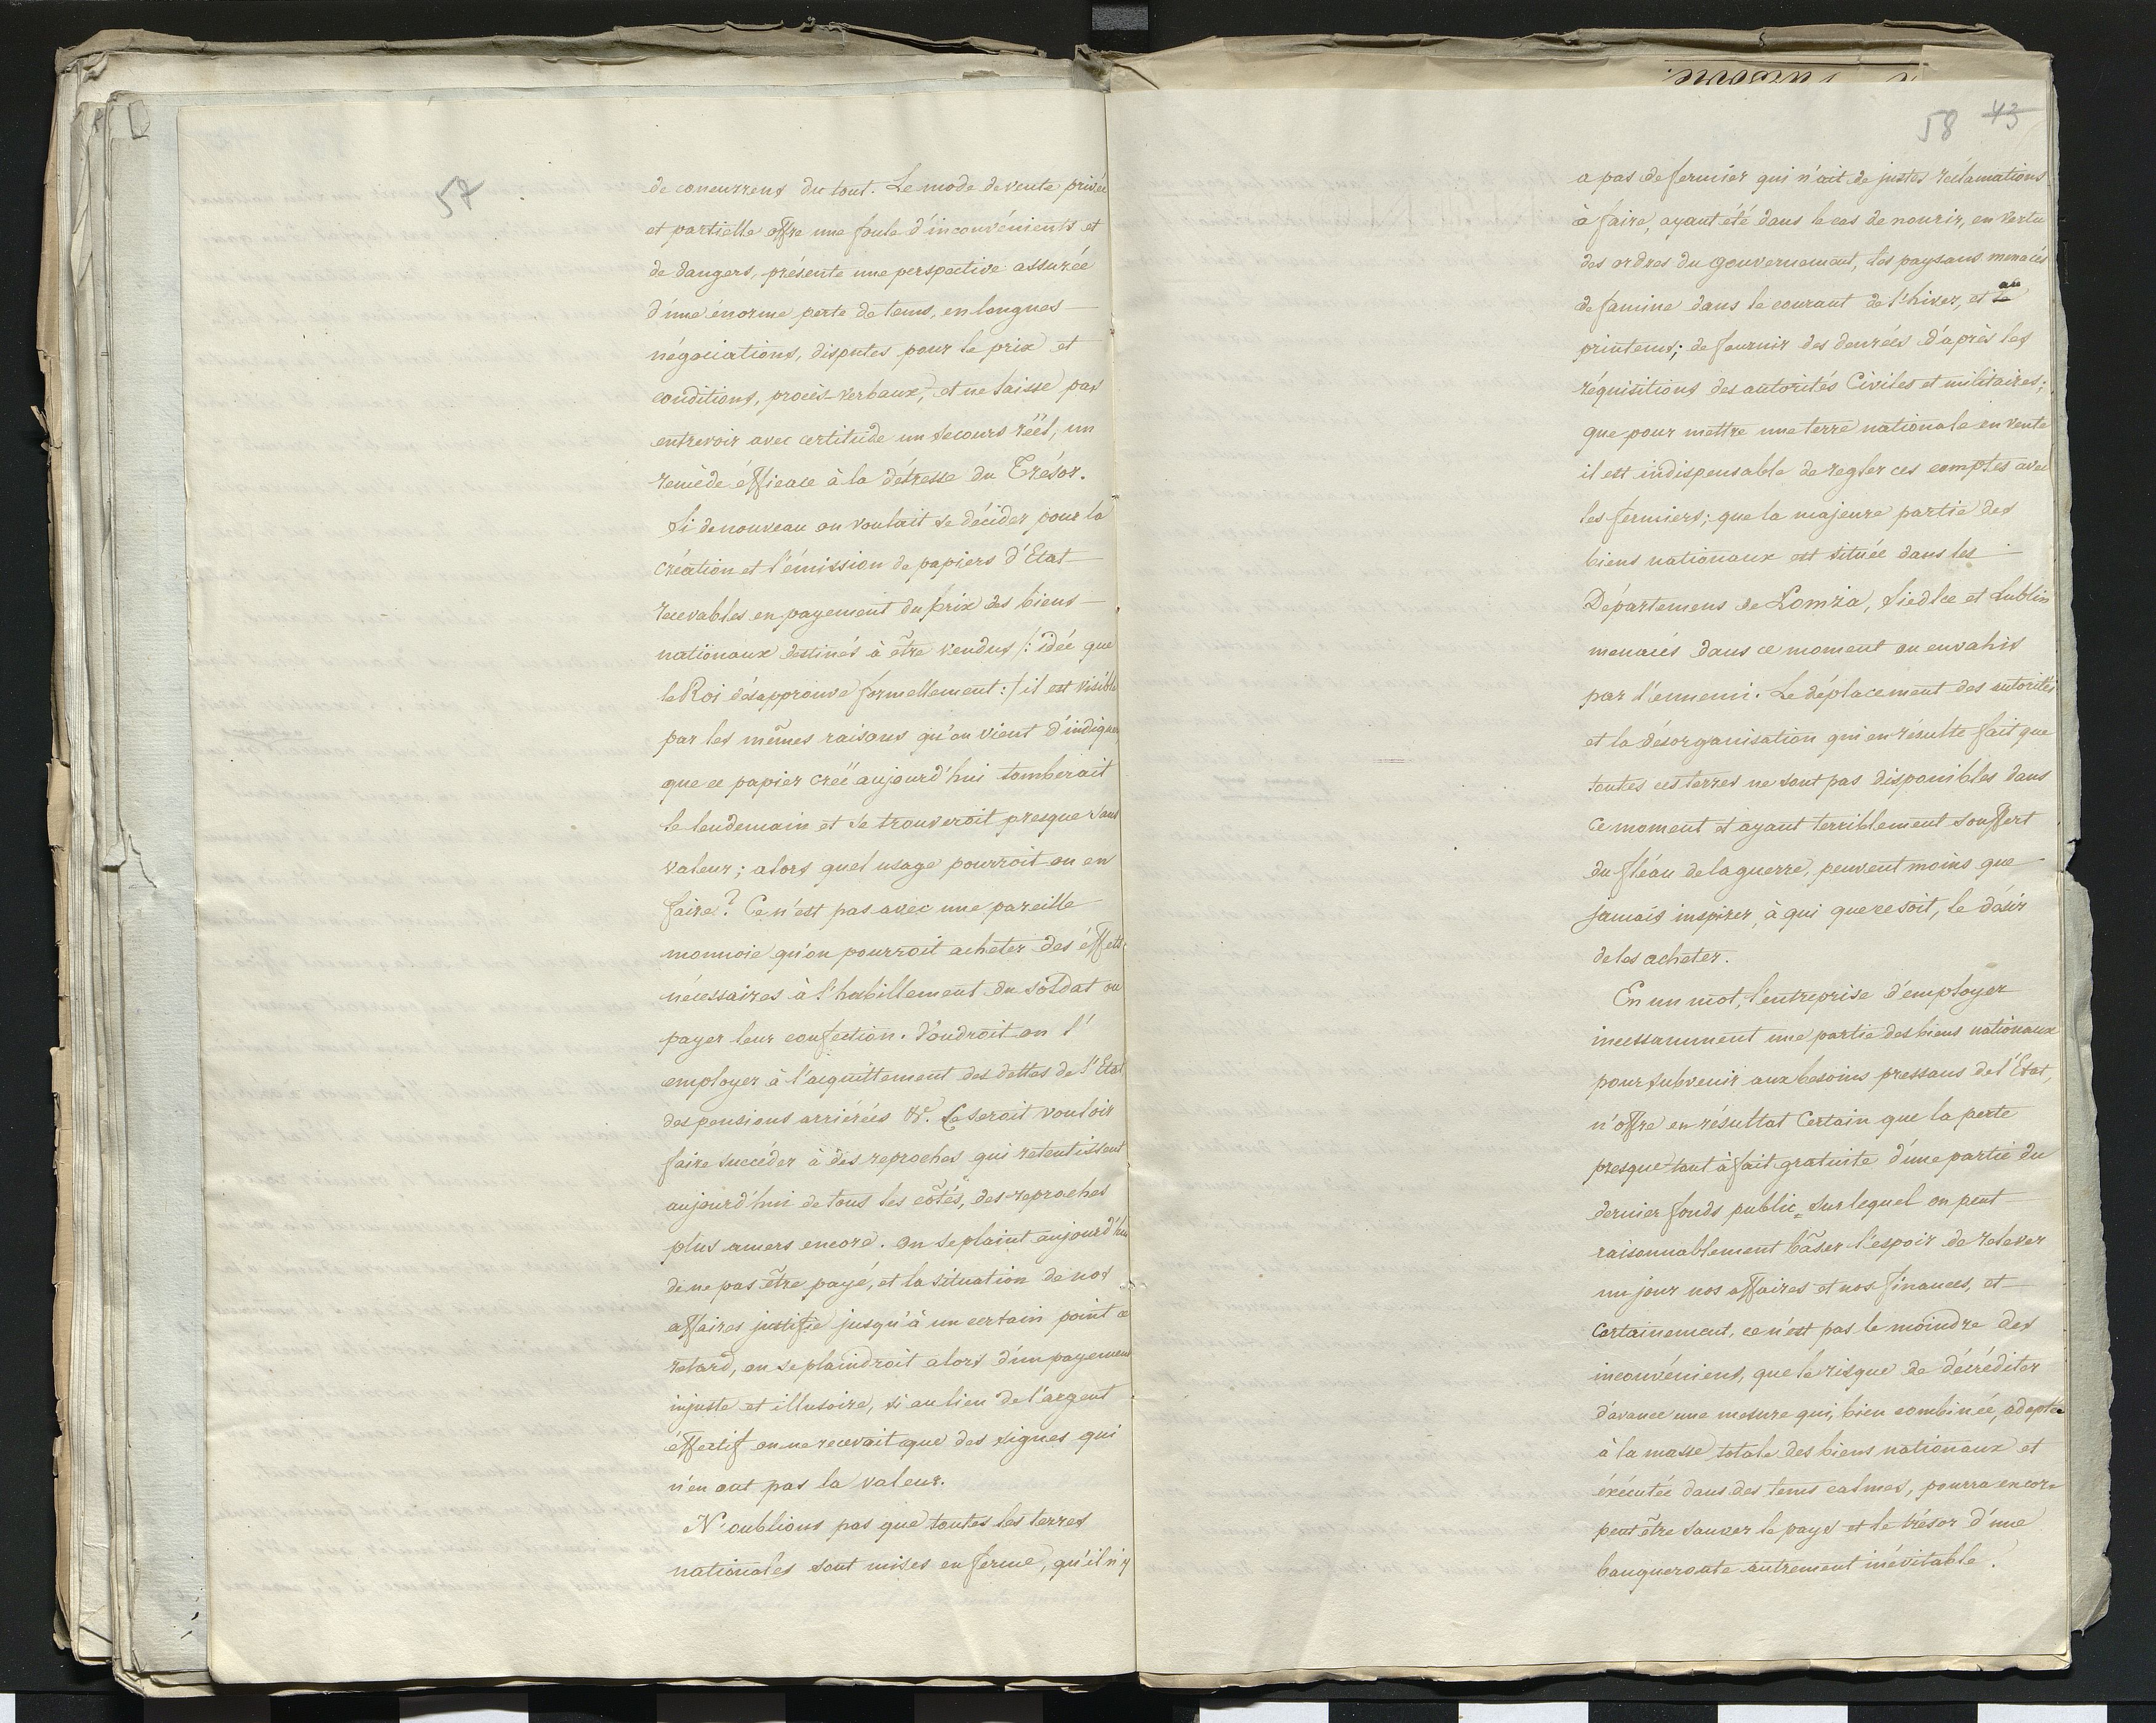 57
de concurrens du tout. Le mode de vente privée
et partielle offre une foule d'inconvénients et
de dangers, présente une perspective assurée
d'une énorme perte de tems, en longues
négociations, disputes pour le prix et
conditions, procès-verbaux, et ne laisse pas
entrevoir avec certitude un secours réël, un
remède éfficace à la détresse du Trésor.
Si de nouveau on voulait se décider pour la
création et l'émission de papiers d'Etat
recevables en payement du prix des biens
nationaux destinés à être vendus /: idée que
le Roi désapprouve formellement :/ il est visible
par les mêmes raisons qu'on vient d'indiquer
que ce papier créé aujourd'hui tomberait
le lendemain et se trouveroit presque sans
valeur; alors quel usage pourroit on en
faire? Ce n'est pas avec une pareille
monnoie qu'on pourroit acheter des éffets
nécessaires à l'habillement du soldat ou
payer leur confection. Voudroit on l'
employer à l'acquittement des dettes de l'Etat
des pensions arriérées &c. Ce serait vouloir
faire succéder à des reproches qui retentissent
aujourd'hui de tous les côtés, des reproches
plus amers encore. On se plaint aujourd'hui
de ne pas être payé, et la situation de nos
affaires justifie jusqu'à un certain point ce
retard, on se plaindroit alors d'un payement
injuste et illusoire, si au lieu de l'argent
éffectif on ne recevait que des signes qui
n'en ont pas la valeur.
N'oublions pas que toutes les terres
nationales sont mises en ferme, qu'il n'y
58 43
a pas de fermier qui n'ait de justes réclamations
à faire, ayant été dans le cas de nourir, en vertu
des ordres du gouvernement, les paysans menacés
de famine dans le courant de l'hiver, et le au
printems; de fournir des denrées d'après les
réquisitions des autorités Civiles et militaires;
que pour mettre une terre nationale en vente
il est indispensable de regler ces comptes avec
les fermiers; que la majeure partie des
biens nationaux est située dans les
Départemens de Lomza, Siedlce et Lublin
menacés dans ce moment ou envahis
par l'ennemi. Le déplacement des autorités
et la désorganisation qui en résulte fait que
toutes ces terres ne sont pas disponibles dans
ce moment et ayant terriblement souffert
du fléau de la guerre, peuvent moins que
jamais inspirer, à qui que ce soit, le désir
de les acheter.
En un mot, l'entreprise d'employer
incessamment une partie des biens nationaux
pour subvenir aux besoins pressans de l'Etat,
n'offre en résultat Certain que la perte
presque tout à fait gratuite d'une partie du
dernier fonds public, sur lequel on peut
raisonnablement bâser l'espoir de relever
un jour nos affaires et nos finances, et
Certainement, ce n'est pas le moindre des
inconvéniens, que le risque de décréditer
d'avance une mesure qui, bien combinée, adaptée
à la masse totale des biens nationaux et
éxécutée dans des tems calmes, pourra encor
peut être sauver le pays et le trésor d'une
banqueroute autrement inévitable.